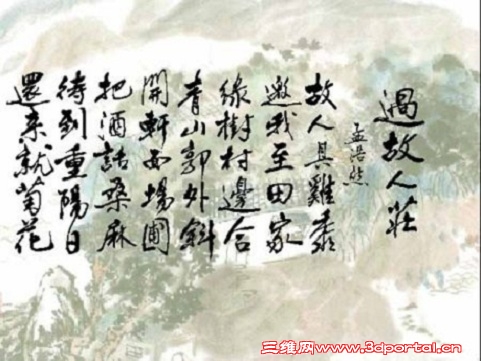 過故人莊
孟浩然
故人具雞黍
邀我至田家
綠樹村邊合
青山郭外斜
開軒面場圃
把酒話桑麻
待到重陽日
還來就菊花
三维网www.3dportal.cn